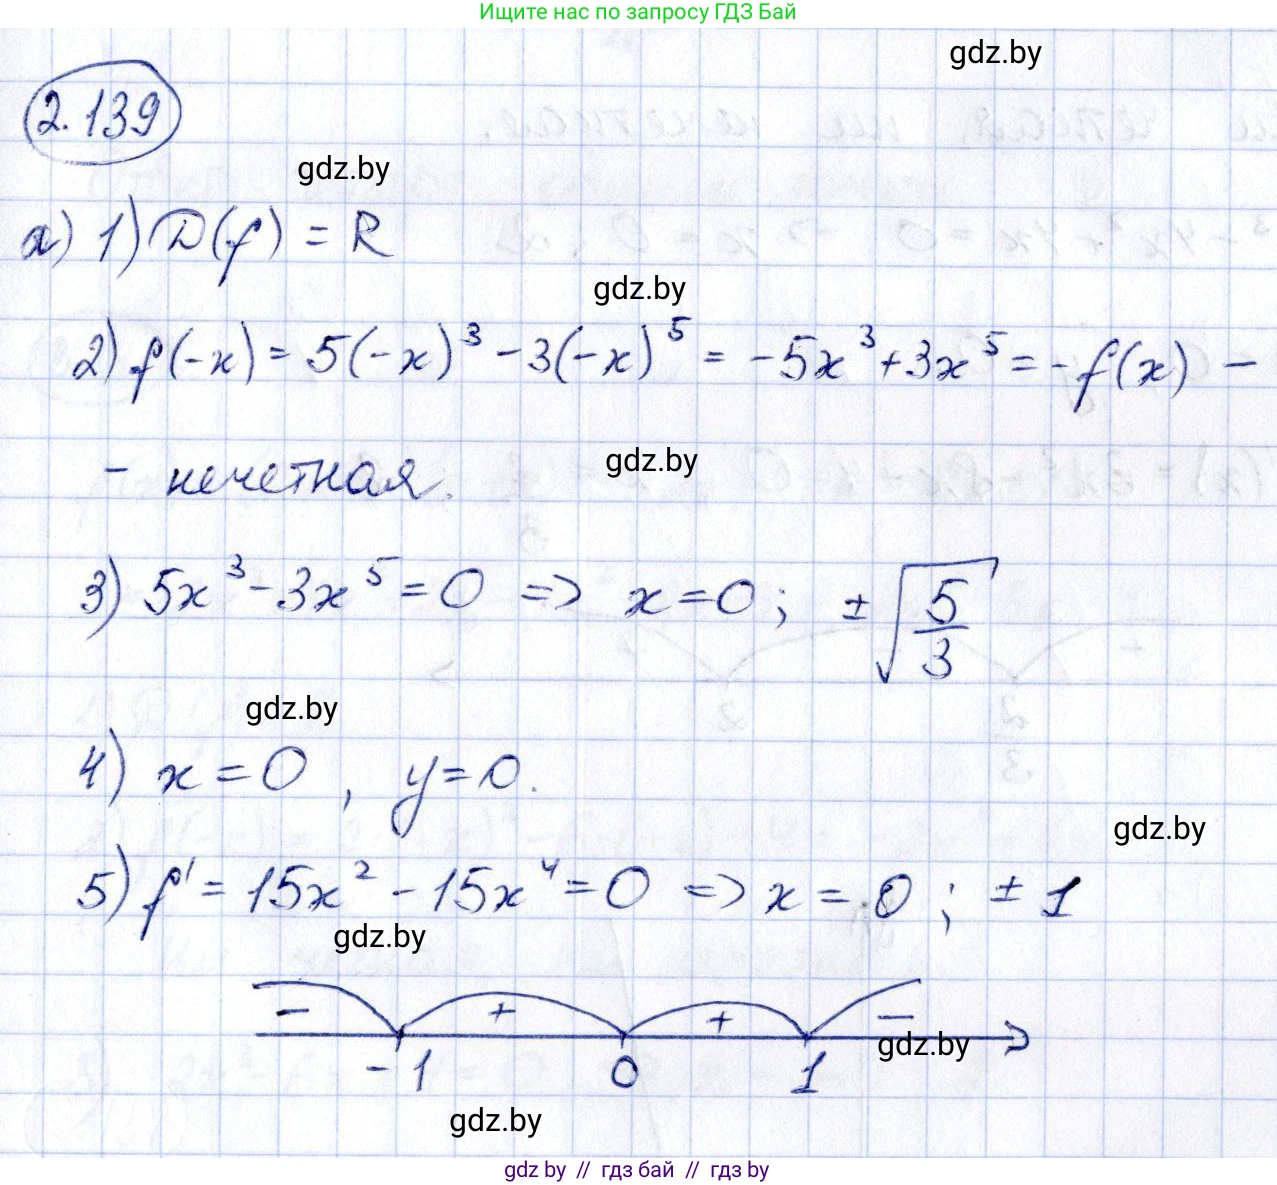 Ищите нас по запросу ГДЗ Бай
gdz.by
2.139
gdz.by
а) 1) D(f) = R
gdz.by
2) f(-x) = 5(-x)³ - 3(-x)⁵ = -5x³ + 3x⁵ = -f(x) -
- нечетная.
gdz.by
3) 5x³ - 3x⁵ = 0 => x = 0; ±√(5/3)
gdz.by
4) x = 0, y = 0.
gdz.by
5) f' = 15x² - 15x⁴ = 0 => x = 0; ± 1
gdz.by
- + + -
gdz.by
-1 0 1
gdz.by
gdz by // гдз бай // gdz by